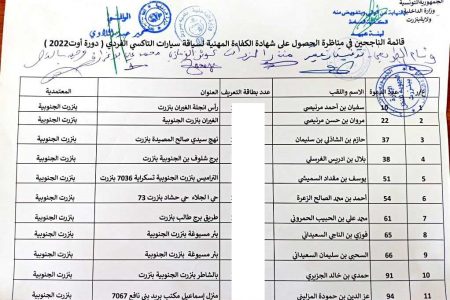 الجمهورية التونسية
وزارة الداخلية
ولاية بنزرت
الوالي
قائمة الناجحين في مناظرة الحصول على شهادة الكفاءة المهنية لسياقة سيارات التاكسي الفردي ( دورة أوت2022 )
ع/ر عدد الدعوة الاسم واللقب عدد بطاقة التعريف العنوان المعتمدية
1 10 سفيان بن أحمد مرنيصي رأس انجلة الغيران بنزرت بنزرت الجنوبية
2 22 مروان بن حسن مرنيصي الغيران بنزرت الجنوبية بنزرت الجنوبية
3 37 حازم بن الشاذلي بن سليمان نهج سيدي صالح المصيدة بنزرت بنزرت الجنوبية
4 38 بلال بن ادريس الغرسلي برج شلوف بن بنزرت بنزرت الجنوبية
5 51 يوسف بن مقداد السميشي التراميس بنزرت الجنوبية تسكراية 7036 بنزرت بنزرت الجنوبية
6 54 أحمد بن محمد الصالح الزعرة حي الجلاء حي حشاد بنزرت 73 بنزرت الجنوبية
7 61 محمد علي بن الحبيب الحمروني طريق برج طالب بنزرت بنزرت الجنوبية
8 65 فوزي بن الناجي السعيداني بئر مسيوغة بنزرت الجنوبية بنزرت الجنوبية
9 66 السحبي بن سليمان السعيداني بئر مسيوغة بنزرت بنزرت الجنوبية
10 91 حمدي بن خالد الجزيري بالشاطر بنزرت الجنوبية بنزرت بنزرت الجنوبية
11 94 عز الدين بن حمودة المزليني منزل إسماعيل مكتب بريد بني نافع 7067 بنزرت الجنوبية